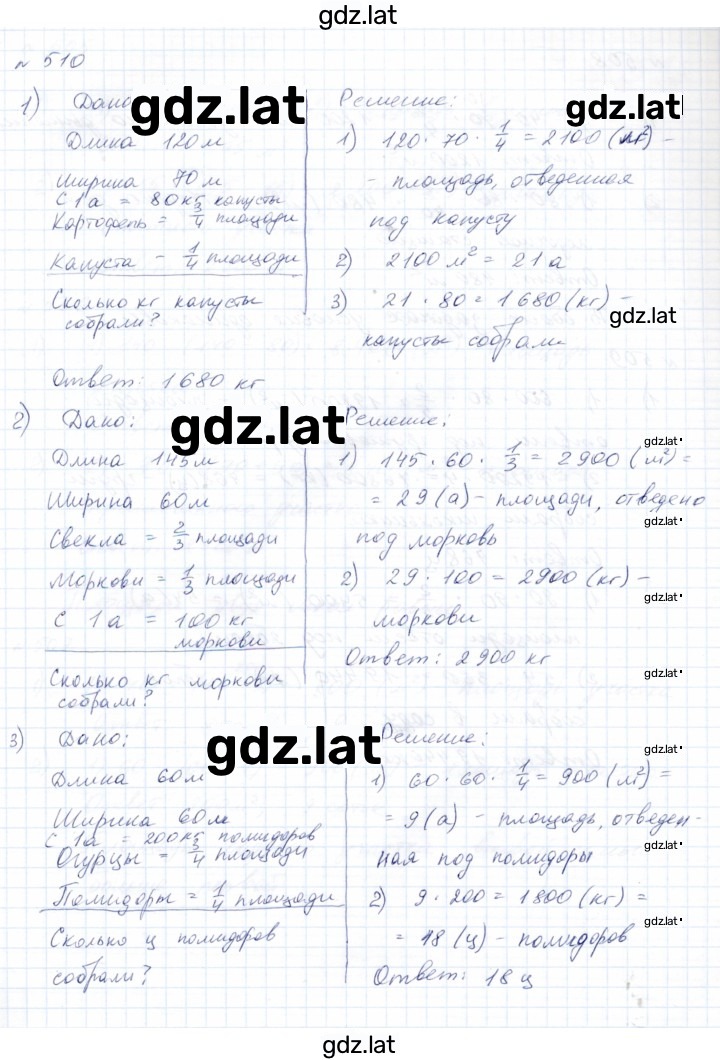 gdz.lat
№ 510
1) Дано: gdz.lat
Длина 120 м
Ширина 70 м
С 1 а = 80 кг капусты
Картофель = 3/4 площади
Капуста - 1/4 площади
Сколько кг капусты
собрали?
Решение: gdz.lat
1) 120 · 70 · 1/4 = 2100 (м²) -
- площадь, отведенная
под капусту
2) 2100 м² = 21 а
3) 21 · 80 = 1680 (кг) -
gdz.lat
капусты собрали
Ответ: 1680 кг
2) Дано: gdz.lat
Длина 145 м
Ширина 60 м
Свекла = 2/3 площади
Моркови = 1/3 площади
С 1 а = 100 кг
моркови
Сколько кг моркови
собрали?
Решение.
gdz.lat
1) 145 · 60 · 1/3 = 2900 (м²) =
gdz.lat
= 29 (а) - площади, отведено
gdz.lat
под морковь
2) 29 · 100 = 2900 (кг) -
gdz.lat
моркови
Ответ: 2900 кг
gdz.lat
3) Дано: gdz.lat
Длина 60 м
Ширина 60 м
С 1 а = 200 кг помидоров
Огурцы = 3/4 площади
Помидоры = 1/4 площади
Сколько ц помидоров
собрали?
Решение:
gdz.lat
1) 60 · 60 · 1/4 = 900 (м²) =
gdz.lat
= 9 (а) - площадь, отведен-
gdz.lat
ная под помидоры
2) 9 · 200 = 1800 (кг) =
gdz.lat
= 18 (ц) - помидоров
Ответ: 18 ц
gdz.lat